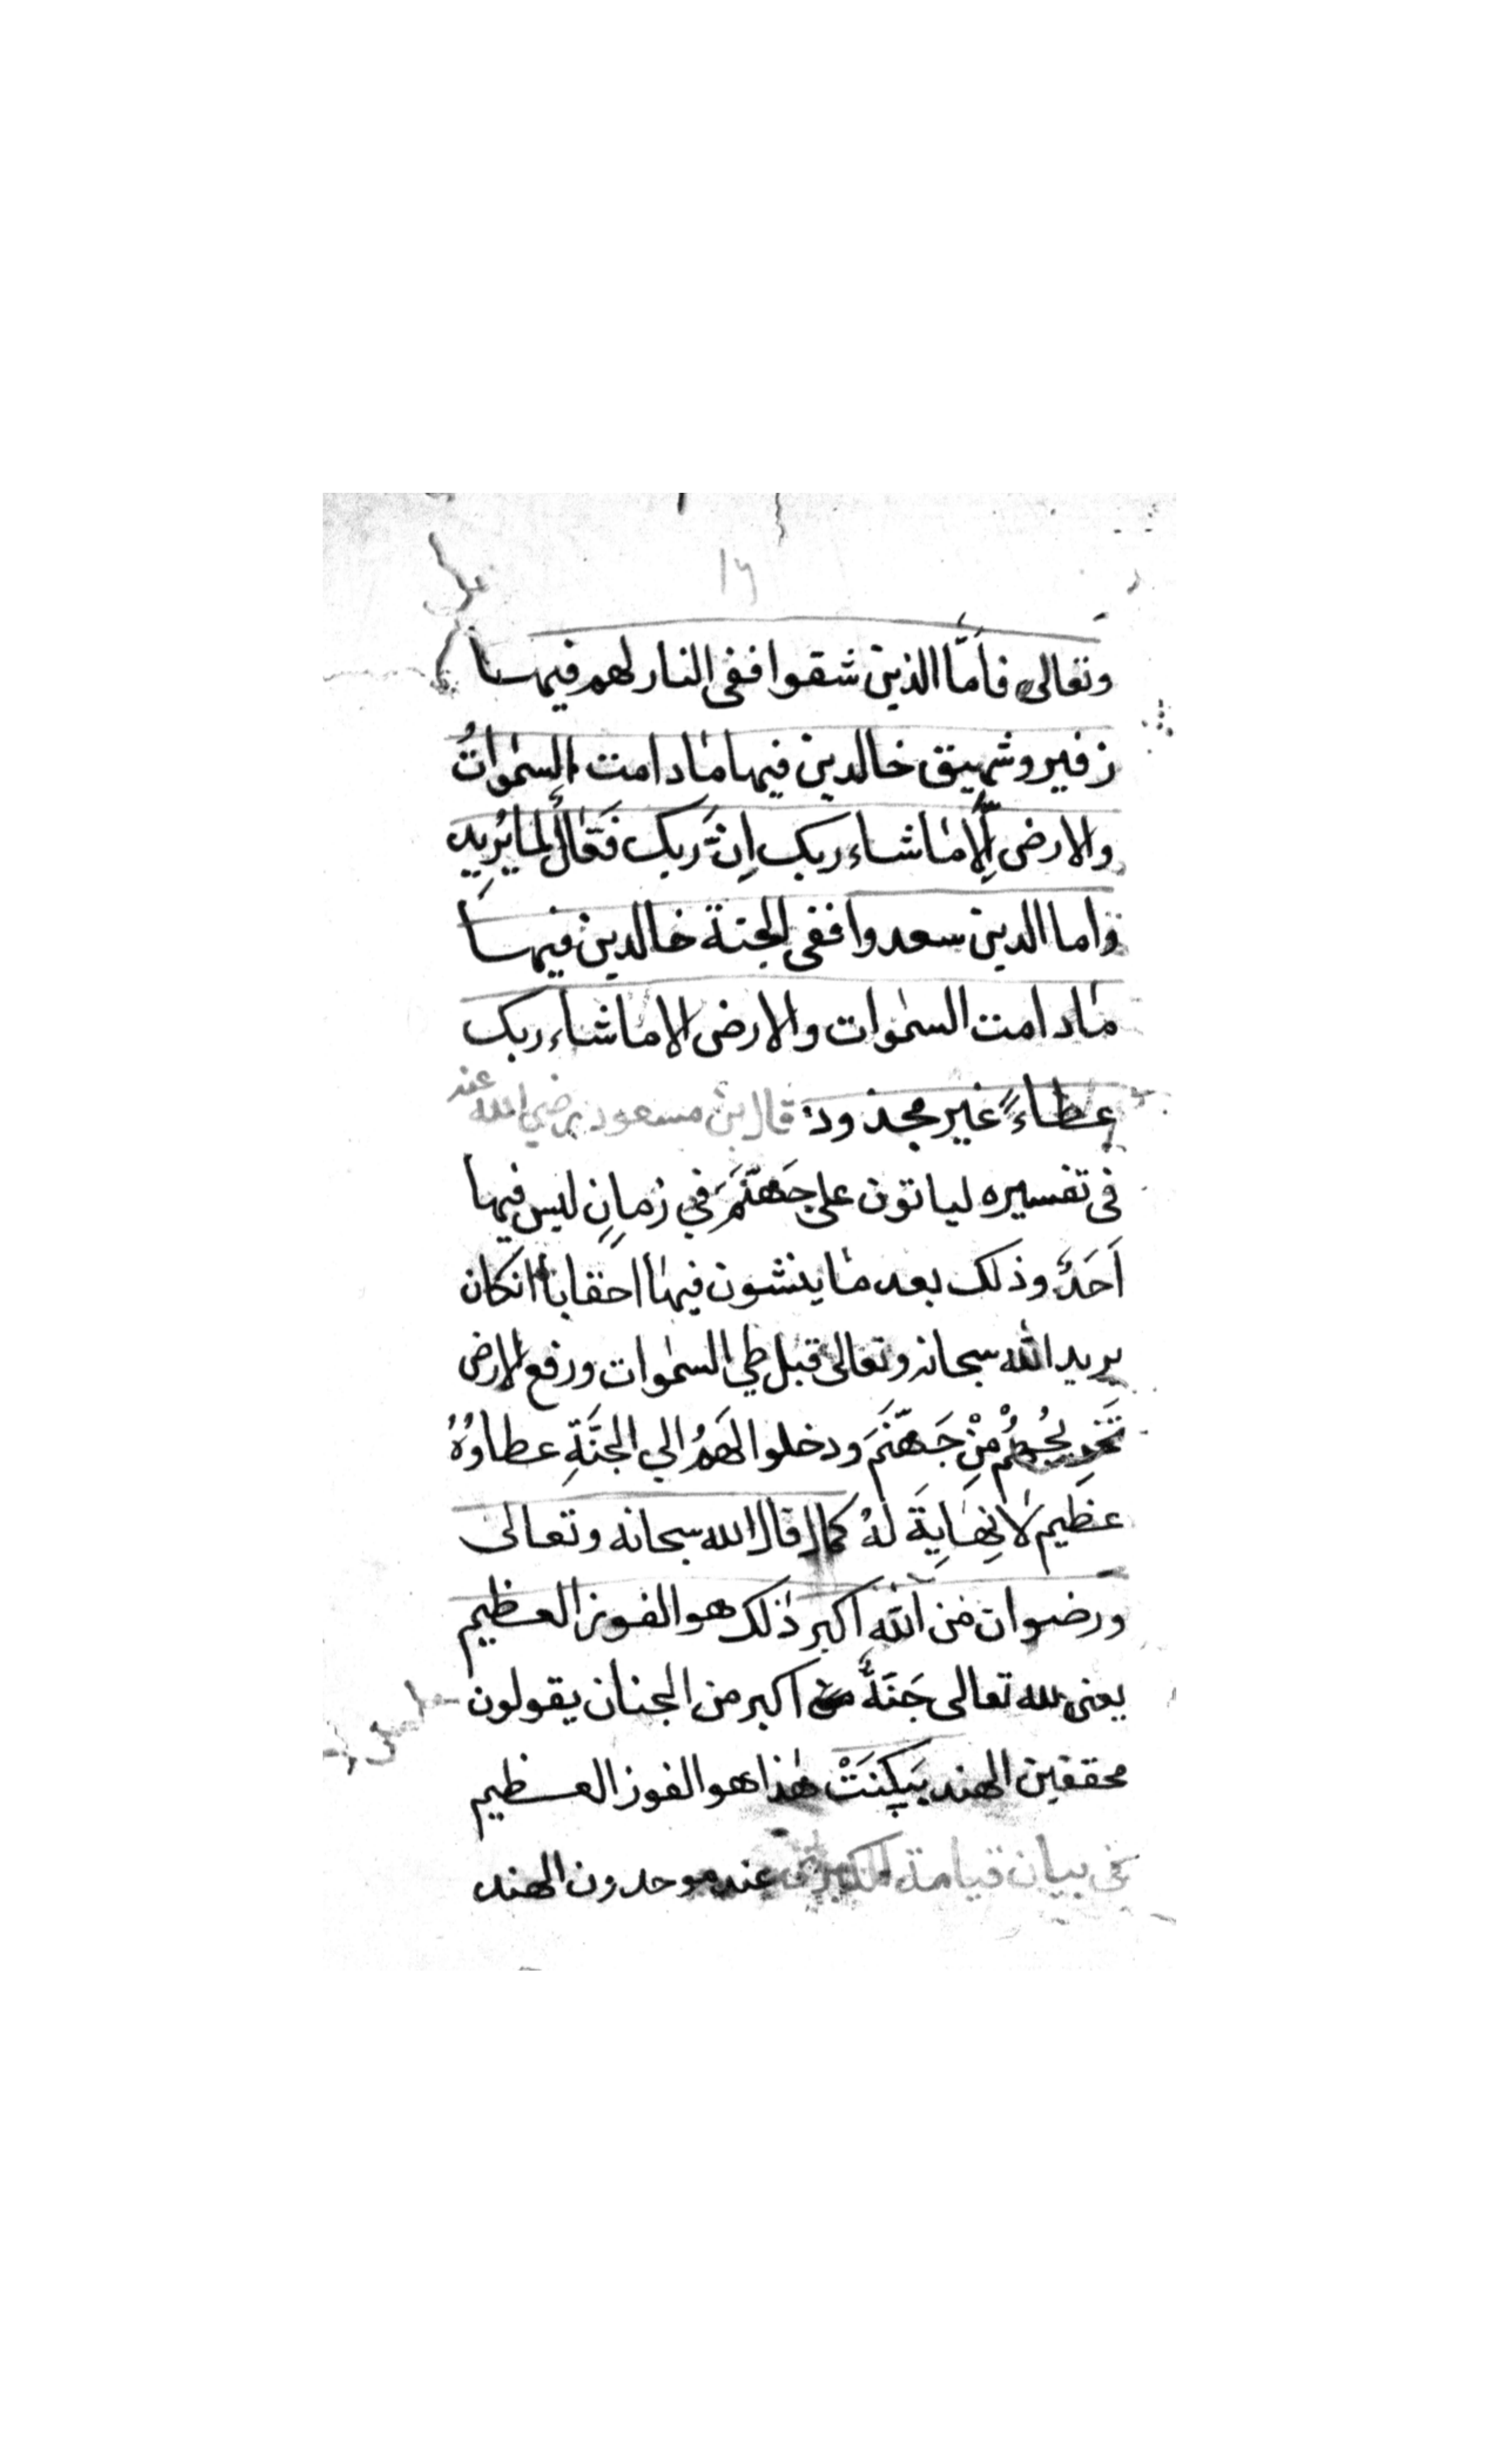 ١٦
وتعالى فاَمَّا الذين شقوا ففى النار لهم فيها
زفير وشهيق خالدين فيها مادامت السمٰواتُ
والارض اِلَّا ماشاء ربك اِنَّ رَبك فَعَّالٌ لمايُرِيد
واما الذين سعدوا ففى الجنة خالدين فيها
مادامت السمٰوات والارض الا ماشاء ربك
عطاءً غير مجذوذ قال ابن مسعود رضي الله عنه
فى تفسيره لياتون على جَهَنَّمَ في زمانٍ ليس فيها
اَحَدٌ وذلك بعد ما ينشون فيها احقاباً انكان
يريد الله سبحانه وتعالى قبل طي السمٰوات ورفع الارض
مِنْ جَهَنَّمَ ودخلوا لهَمُ الي الجَنَّةِ عطاوُهُ
عظَيم لانِهَايةَ لهُ كما قال الله سبحانه وتعالى
ورضوان من الله اكبر ذٰلك هو الفوز العظيم
يعنى لله تعالى جَنَةٌ اكبر من الجنان يقولون
محققين الهند بَيكِنَتْ هٰذا هو الفوز العظيم
فى بيان قيامة الكبرى عند موحدون الهند